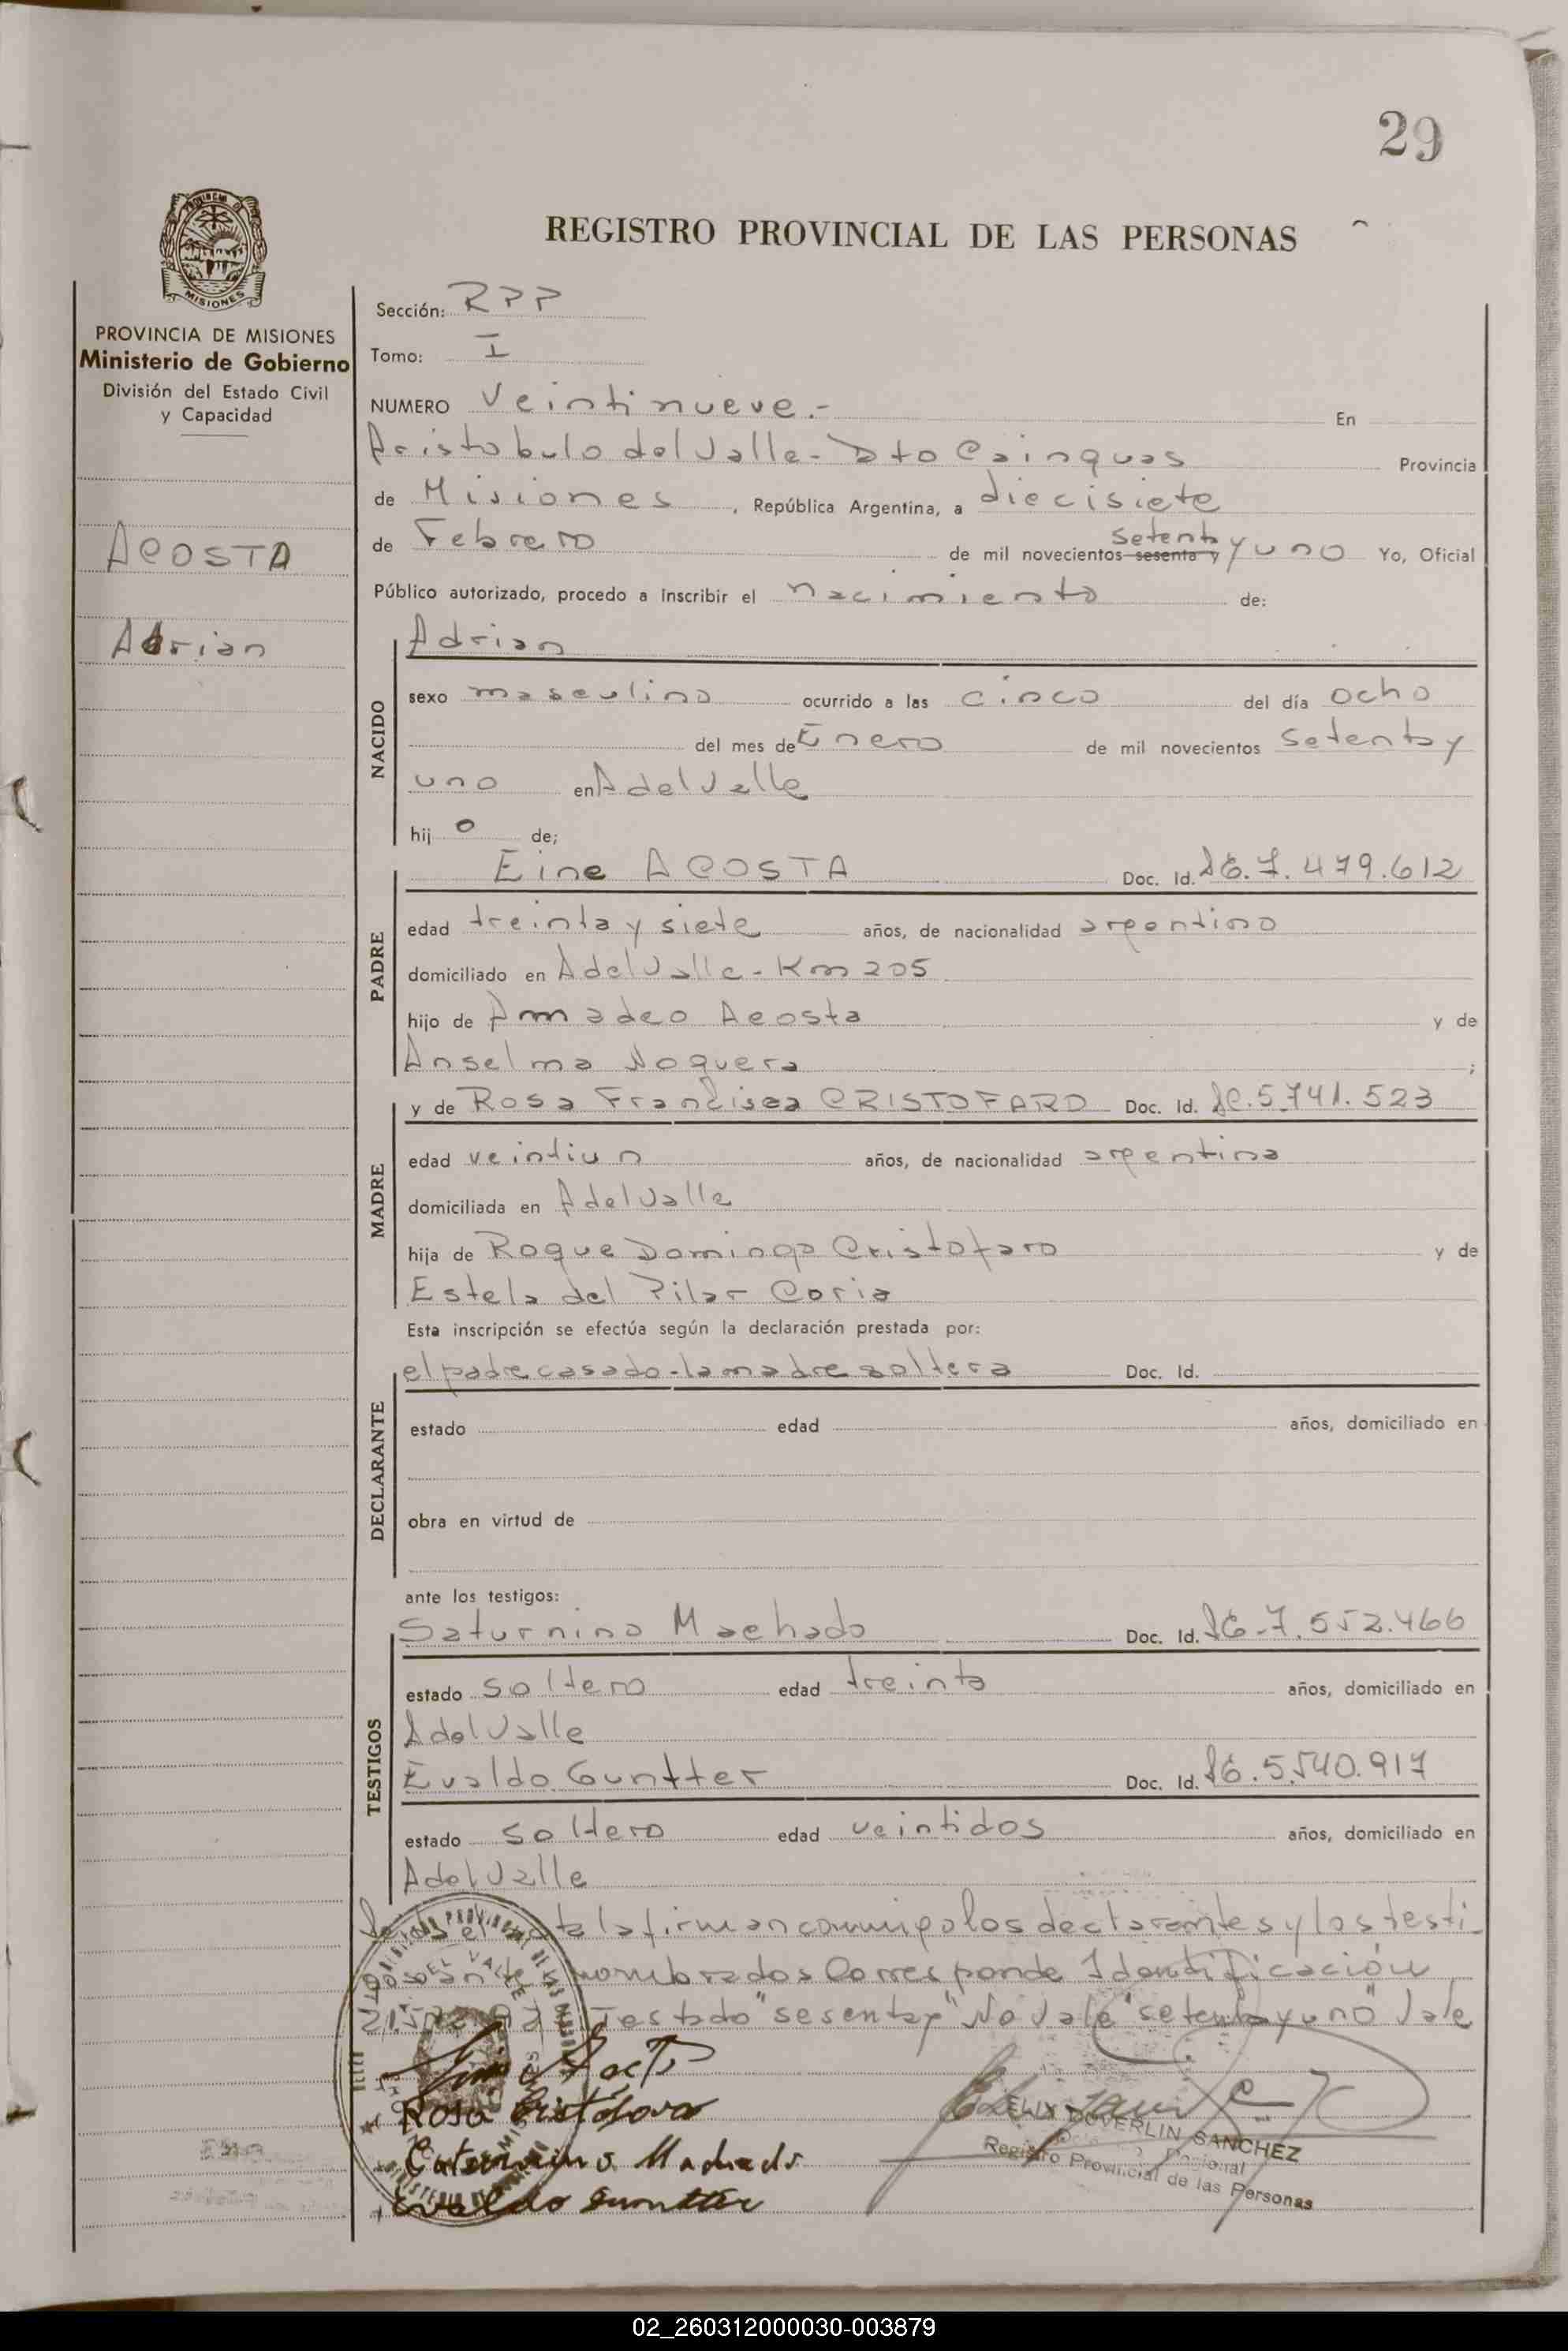 29
REGISTRO PROVINCIAL DE LAS PERSONAS
MISIONES
PROVINCIA DE MISIONES
Ministerio de Gobierno
División del Estado Civil
y Capacidad
ACOSTA
Adrian
Sección: RPP
Tomo: I
NUMERO Veintinueve.- En
Aristobulo del Valle - Dto Cainguas Provincia
de Misiones, República Argentina, a diecisiete
de Febrero de mil novecientos sesenta y setenta y uno Yo, Oficial
Público autorizado, procedo a inscribir el nacimiento de:
NACIDO
Adrian
sexo masculino ocurrido a las cinco del día ocho
del mes de Enero de mil novecientos setenta y
uno en A del Valle
hij o de;
PADRE
Eine ACOSTA Doc. Id. 7.479.612
edad treinta y siete años, de nacionalidad argentino
domiciliado en A del Valle - Km 205
hijo de Amadeo Acosta y de
Anselma Noguera ;
MADRE
y de Rosa Francisca CRISTOFARO Doc. Id. 5.741.523
edad veintiun años, de nacionalidad argentina
domiciliada en A del Valle
hija de Roque Domingo Cristofaro y de
Estela del Pilar Coria
Esta inscripción se efectúa según la declaración prestada por:
DECLARANTE
el padre casado - la madre soltera Doc. Id.
estado edad años, domiciliado en
obra en virtud de
ante los testigos:
TESTIGOS
Saturnino Machado Doc. Id. 7.552.466
estado soltero edad treinta años, domiciliado en
A del Valle
Evaldo Guntter Doc. Id. 5.540.917
estado soltero edad veintidos años, domiciliado en
A del Valle
la firman conmigo los declarantes y los testi
nombrados Corresponde Identificación
Testado "sesenta y" No Vale "setenta y uno" Vale
Rosa Cristofaro
Saturnino Machado
Evaldo Guntter
FELIX DUVERLIN SANCHEZ
Registro Provincial de las Personas
02_260312000030-003879